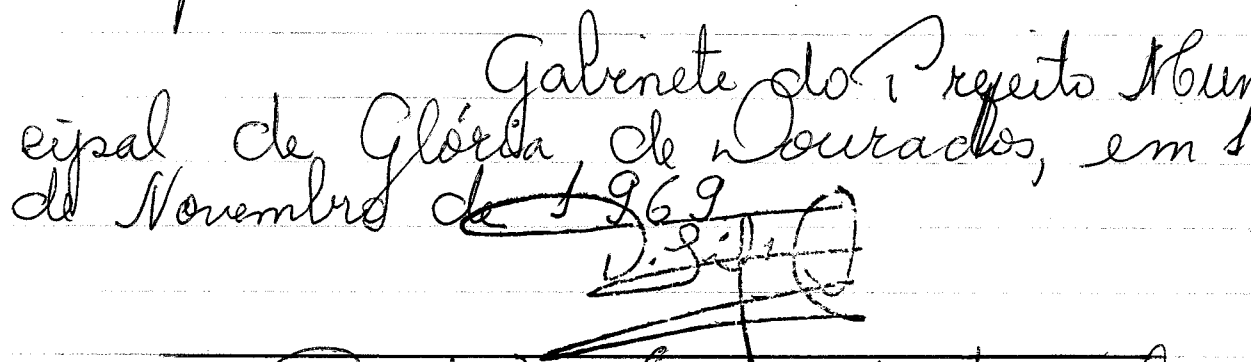 Gabinete do Prefeito Muni
cipal de Glória de Dourados, em 1
de Novembro de 1969